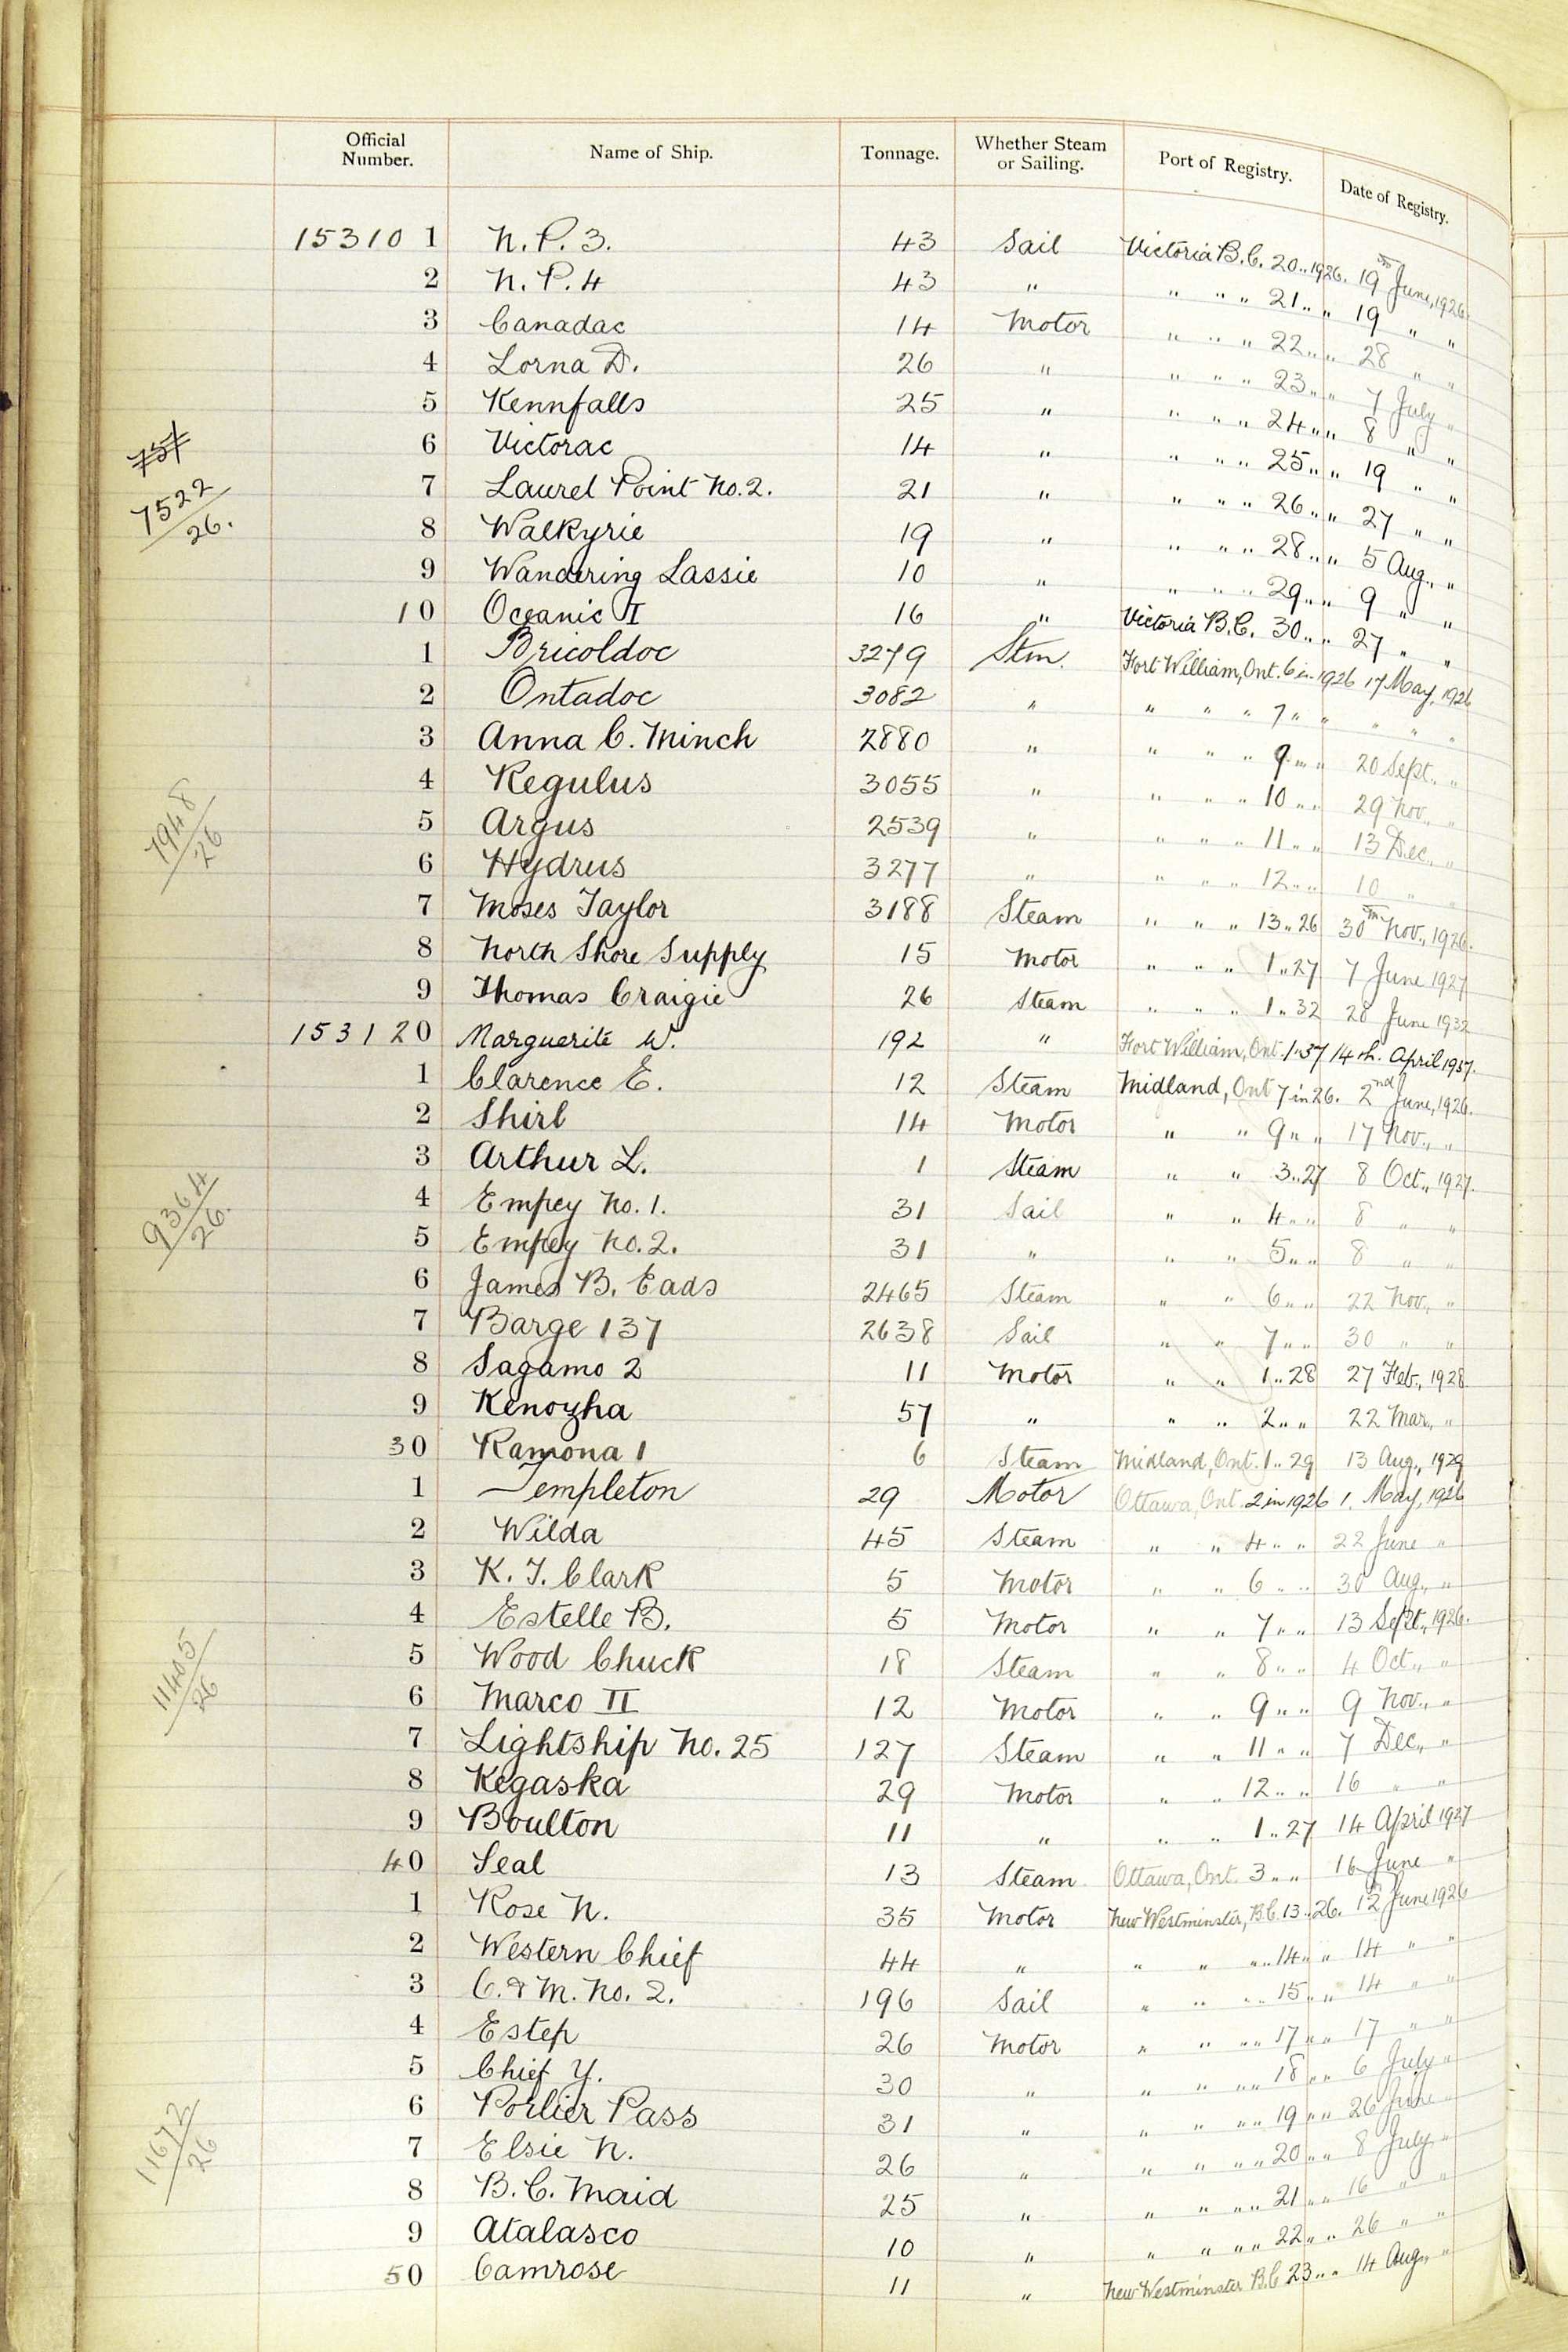 Official Number. Name of Ship. Tonnage. Whether Steam or Sailing. Port of Registry. Date of Registry.
15310 1 N. P. 3. 43 Sail Victoria B.C. 20 .. 1926. 19th June, 1926
2 N. P. 4 43 " " " " 21 .. " 19 " "
3 Canadac 14 Motor " " " 22 .. " 28 " "
4 Lorna D. 26 " " " " 23 .. " 7 July "
5 Kennfalls 25 " " " " 24 " " 8 " "
6 Victorac 14 " " " " 25 .. " 19 " "
7 Laurel Point No. 2. 21 " " " " 26 .. " 27 " "
757
7522/26.
8 Walkyrie 19 " " " " 28 .. " 5 Aug., "
9 Wandering Lassie 10 " " " " 29 .. " 9 " "
10 Oceanic I 16 " Victoria B.C. 30 .. " 27 " "
1 Bricoldoc 3279 Stm. Fort William, Ont. 6 in 1926 17 May, 1926
2 Ontadoc 3082 " " " " 7 " " " " "
3 Anna C. Minch 2880 " " " " 9 " " 20 Sept., "
4 Regulus 3055 " " " " 10 " " 29 Nov., "
7948/26
5 Argus 2539 " " " " 11 " " 13 Dec., "
6 Hydrus 3277 " " " " 12 " " 10 " "
7 Moses Taylor 3188 Steam " " " 13 .. 26 30th Nov., 1926.
8 North Shore Supply 15 Motor " " " 1 .. 27 7 June 1927
9 Thomas Craigie 26 Steam " " " 1 .. 32 28 June 1932
153120 Marguerite W. 192 " Fort William, Ont. 1 . 37 14th. April 1937.
1 Clarence E. 12 Steam Midland, Ont 7 in 26. 2nd June, 1926.
2 Shirl 14 Motor " " 9 " " 17 Nov., "
3 Arthur L. 1 Steam " " 3 .. 27 8 Oct., 1927.
4 Empey No. 1. 31 Sail " " 4 " " 8 " "
9364/26.
5 Empey No. 2. 31 " " " 5 " " 8 " "
6 James B. Eads 2465 Steam " " 6 " " 22 Nov., "
7 Barge 137 2638 Sail " " 7 " " 30 " "
8 Sagamo 2 11 Motor " " 1 .. 28 27 Feb., 1928
9 Kenozha 57 " " " 2 " " 22 Mar., "
30 Ramona 1 6 Steam Midland, Ont. 1 .. 29 13 Aug., 1929
1 Templeton 29 Motor Ottawa, Ont. 2 in 1926 1. May, 1926
2 Wilda 45 Steam " " 4 " " 22 June "
3 K. T. Clark 5 Motor " " 6 " " 30 Aug., "
4 Estelle B. 5 Motor " " 7 " " 13 Sept., 1926.
5 Wood Chuck 18 Steam " " 8 " " 4 Oct., "
11405/26
6 Marco II 12 Motor " " 9 " " 9 Nov., "
7 Lightship No. 25 127 Steam " " 11 " " 7 Dec., "
8 Kegaska 29 Motor " " 12 " " 16 " "
9 Boulton 11 " " " 1 .. 27 14 April 1927
40 Seal 13 Steam Ottawa, Ont. 3 " " 16 June "
1 Rose N. 35 Motor New Westminster, B.C. 13 .. 26. 12th June 1926
2 Western Chief 44 " " " " " 14 " " 14 " "
3 C. & M. No. 2. 196 Sail " " " " 15 " " 14 " "
4 Estep 26 Motor " " " " 17 " " 17 " "
5 Chief Y. 30 " " " " " 18 " " 6 July "
6 Porlier Pass 31 " " " " " 19 " " 26 June "
11672/26
7 Elsie N. 26 " " " " " 20 " " 8 July "
8 B. C. Maid 25 " " " " " 21 " " 16 " "
9 Atalasco 10 " " " " " 22 " " 26 " "
50 Camrose 11 " New Westminster B.C 23 .. " 14 Aug., "